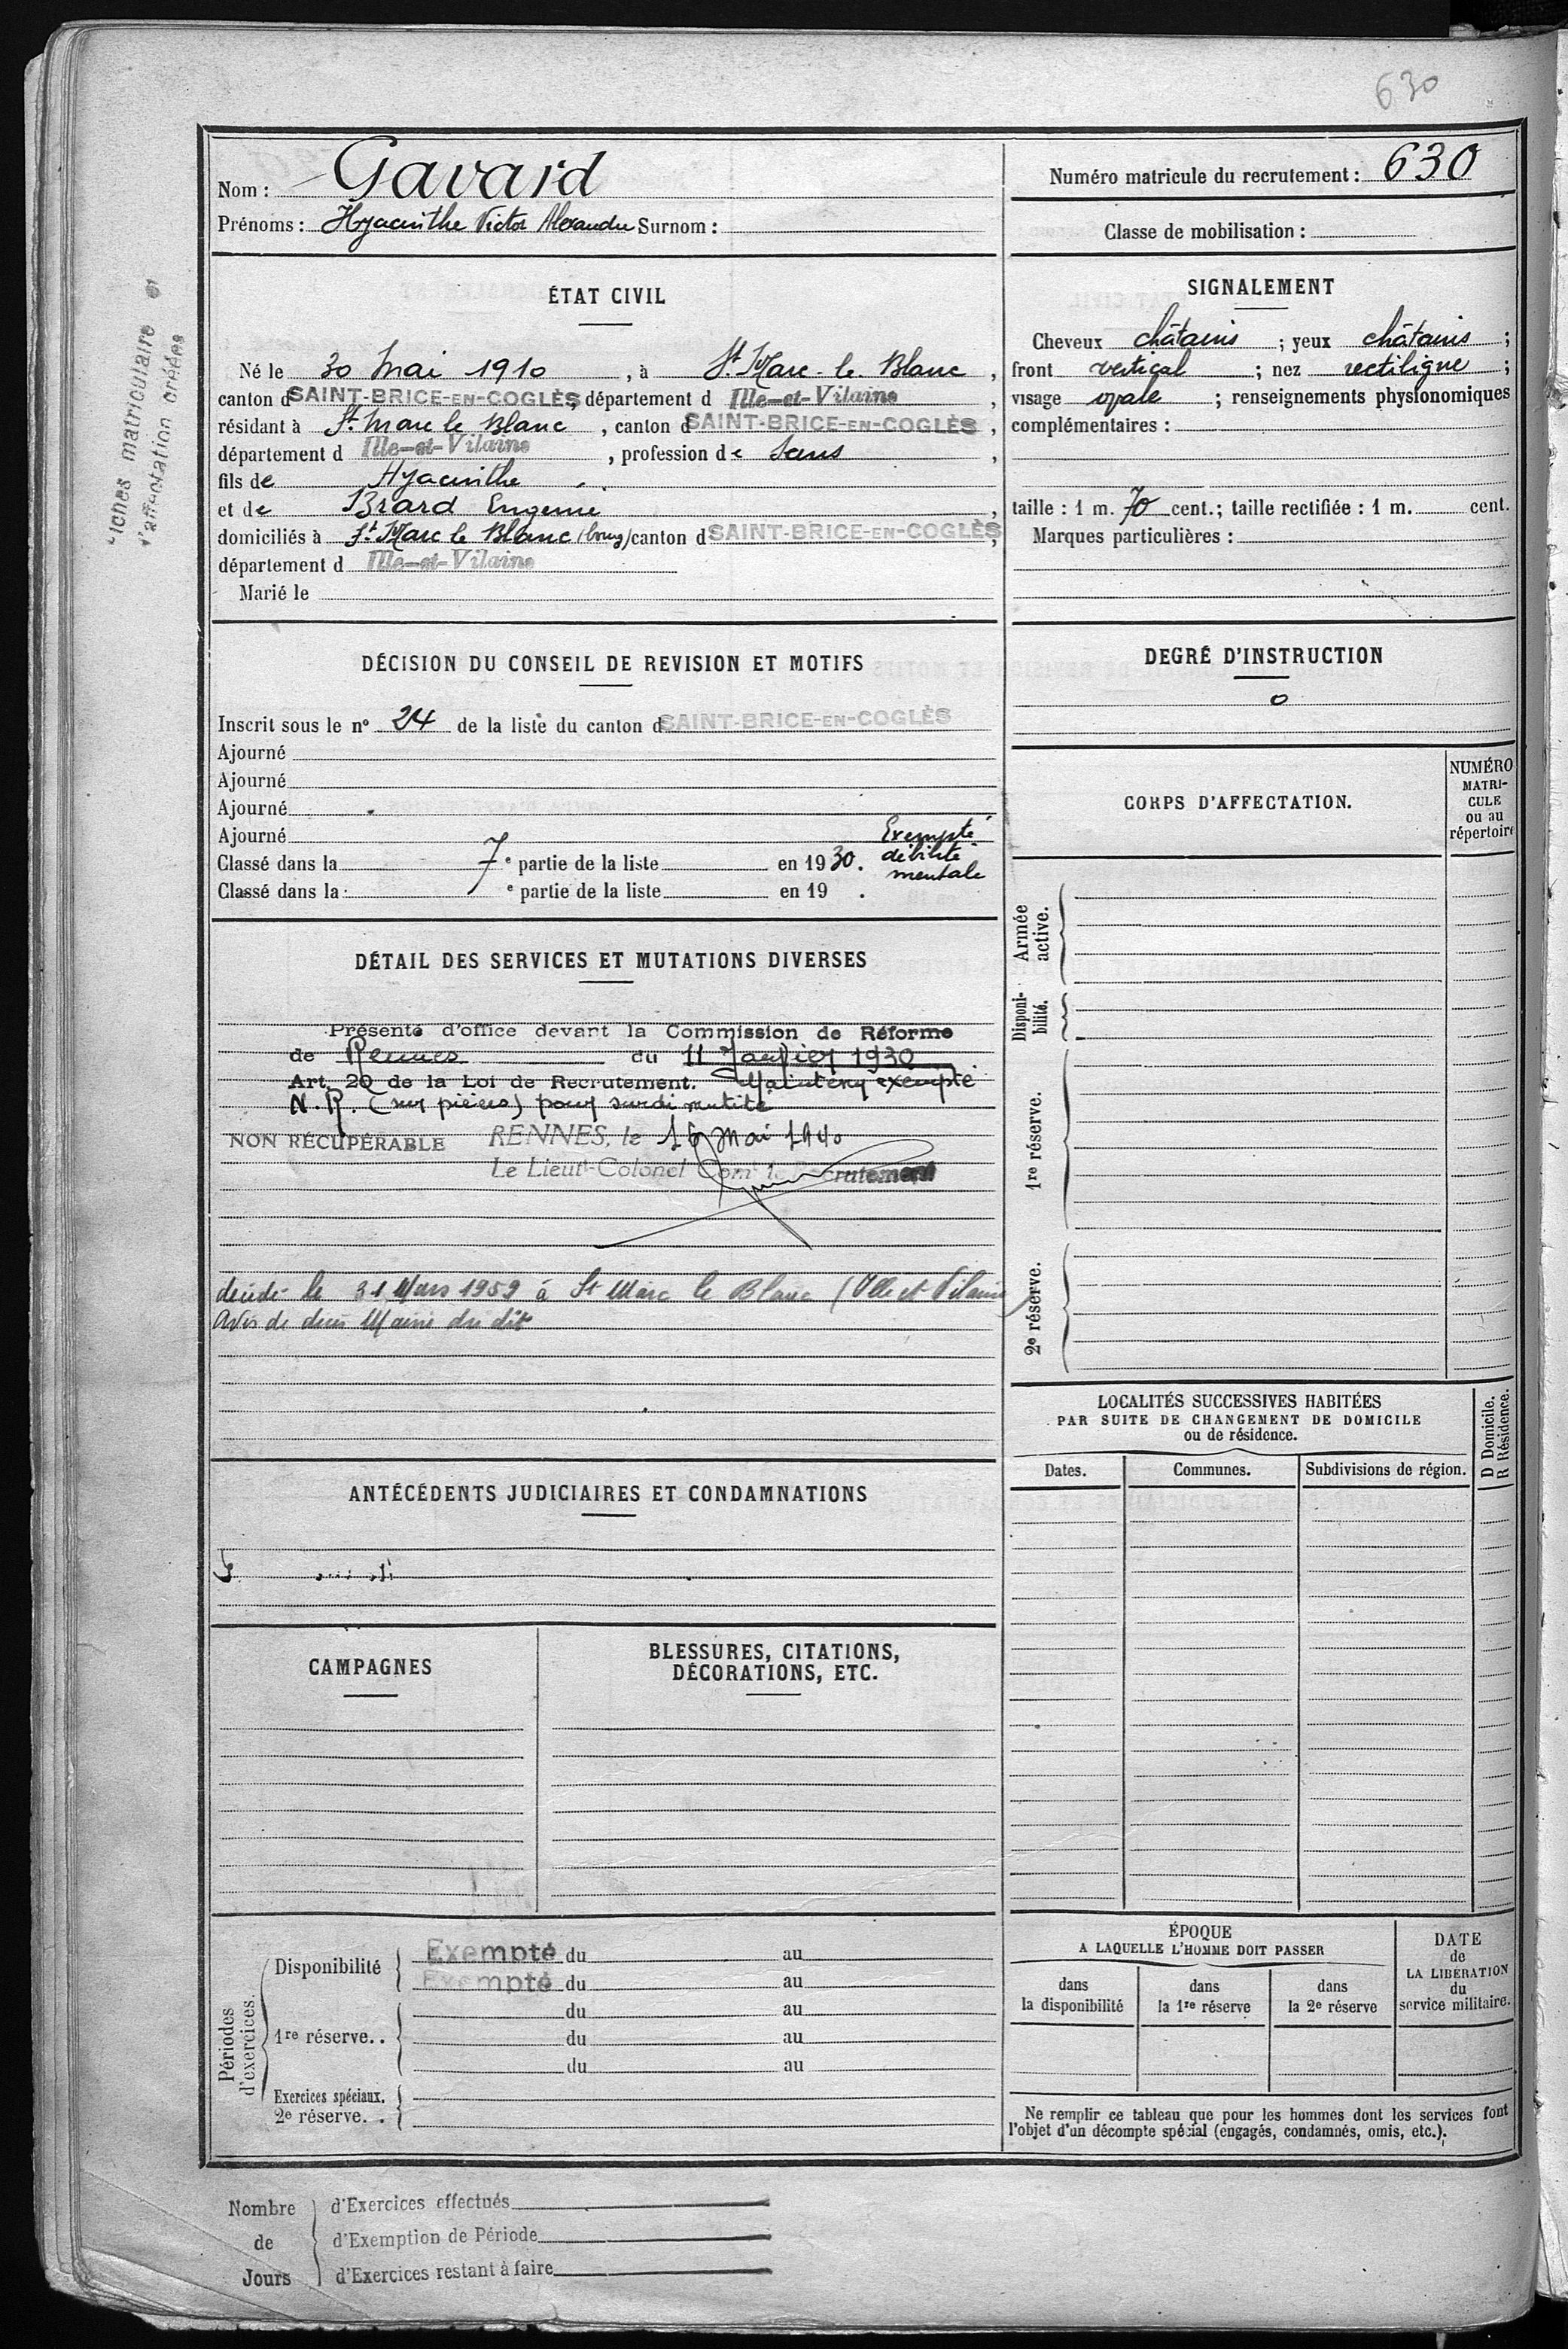 630
Nom : Gavard
Prénoms : Hyacinthe Victor Alexandre Surnom :
Numéro matricule du recrutement : 630
Classe de mobilisation :
matriculaire et
d'affectation créées
ÉTAT CIVIL
Né le 30 Mai 1910, à St Marc-le-Blanc,
canton d SAINT-BRICE-EN-COGLÈS, département d Ille-et-Vilaine,
résidant à St Marc le Blanc, canton d SAINT-BRICE-EN-COGLÈS,
département d Ille-et-Vilaine, profession de Sans,
fils de Hyacinthe
et de Brard Eugénie,
domiciliés à St Marc le Blanc (bourg) canton d SAINT-BRICE-EN-COGLÈS,
département d Ille-et-Vilaine
Marié le
SIGNALEMENT
Cheveux châtains ; yeux châtains ;
front vertical ; nez rectiligne ;
visage ovale ; renseignements physionomiques
complémentaires :
taille : 1 m. 70 cent.; taille rectifiée : 1 m. cent.
Marques particulières :
DÉCISION DU CONSEIL DE REVISION ET MOTIFS
Inscrit sous le n° 24 de la liste du canton d SAINT-BRICE-EN-COGLÈS
Ajourné
Ajourné
Ajourné
Ajourné
Classé dans la 7e partie de la liste en 1930. Exempté
débilité
mentale
Classé dans la e partie de la liste en 19 .
DEGRÉ D'INSTRUCTION
0
DÉTAIL DES SERVICES ET MUTATIONS DIVERSES
Présenté d'office devant la Commission de Réforme
de Rennes du 11 Janvier 1930
Art. 20 de la Loi de Recrutement. Maintenu exempté
N. R. (sur pièces) pour surdi mutité
NON RÉCUPÉRABLE RENNES, le 16 Mai 1940
Le Lieut-Colonel Comt le Recrutement
décédé le 31 Mars 1959 à St Marc le Blanc (Ille et Vilaine)
Avis de décès Mairie du dit
CORPS D'AFFECTATION.
NUMÉRO
MATRI-
CULE
ou au
répertoire
Armée
active.
Disponi-
bilité.
1re réserve.
2e réserve.
LOCALITÉS SUCCESSIVES HABITÉES
PAR SUITE DE CHANGEMENT DE DOMICILE
ou de résidence.
D Domicile.
R Résidence.
Dates. Communes. Subdivisions de région.
ANTÉCÉDENTS JUDICIAIRES ET CONDAMNATIONS
CAMPAGNES
BLESSURES, CITATIONS,
DÉCORATIONS, ETC.
Périodes
d'exercices.
Disponibilité
Exempté du au
Exempté du au
1re réserve..
du au
du au
du au
Exercices spéciaux.
2e réserve. .
ÉPOQUE
A LAQUELLE L'HOMME DOIT PASSER
dans
la disponibilité
dans
la 1re réserve
dans
la 2e réserve
DATE
de
LA LIBÉRATION
du
service militaire.
Ne remplir ce tableau que pour les hommes dont les services font
l'objet d'un décompte spécial (engagés, condamnés, omis, etc.).
Nombre
de
Jours
d'Exercices effectués
d'Exemption de Période
d'Exercices restant à faire